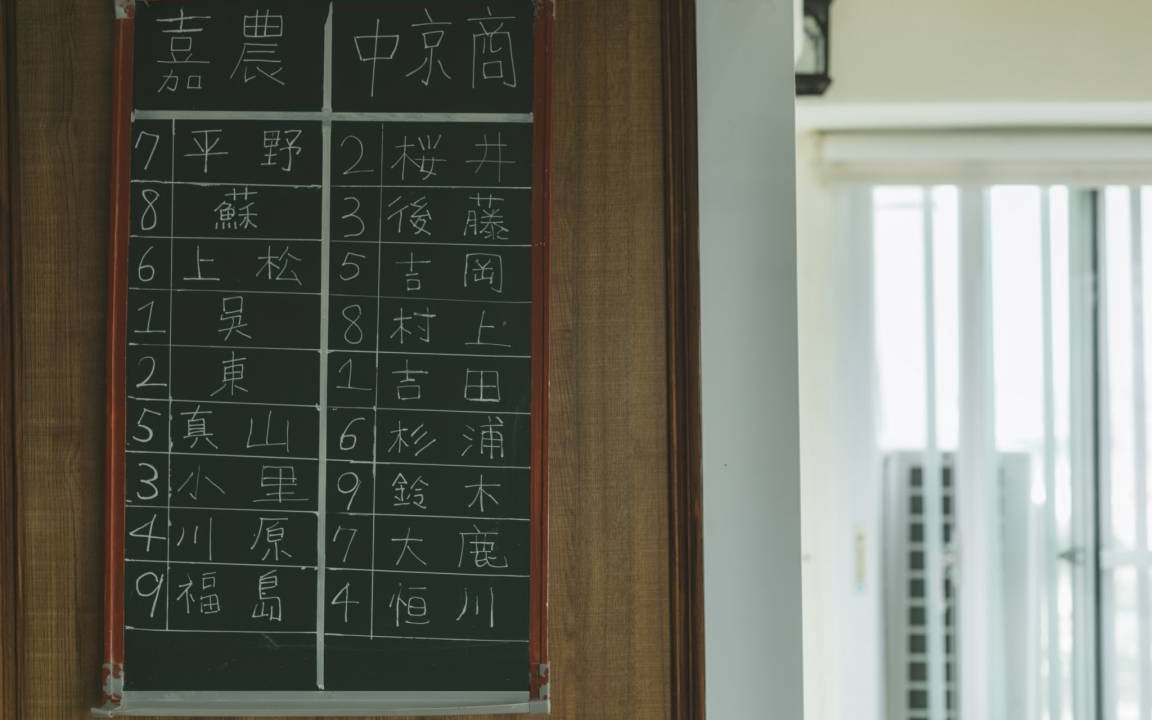 嘉農 中京商
7 平野 2 桜井
8 蘇 3 後藤
6 上松 5 吉岡
1 吳 8 村上
2 東 1 吉田
5 真山 6 杉浦
3 小里 9 鈴木
4 川原 7 大鹿
9 福島 4 恒川